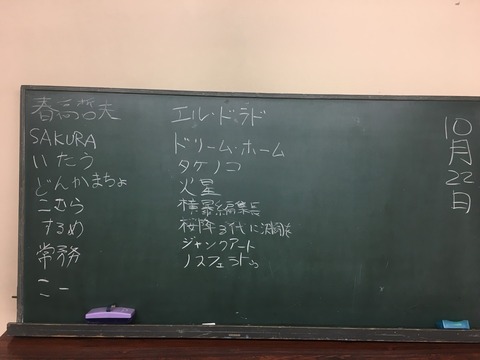 春高哲夫
SAKURA
いたう
どんかまちょ
こむら
するめ
常務
こー
エル・ドラド
ドリーム・ホーム
タケノコ
火星
横暴編集長
桜降る代に決闘を
ジャンクアート
ノスフェラトゥ
10月22日